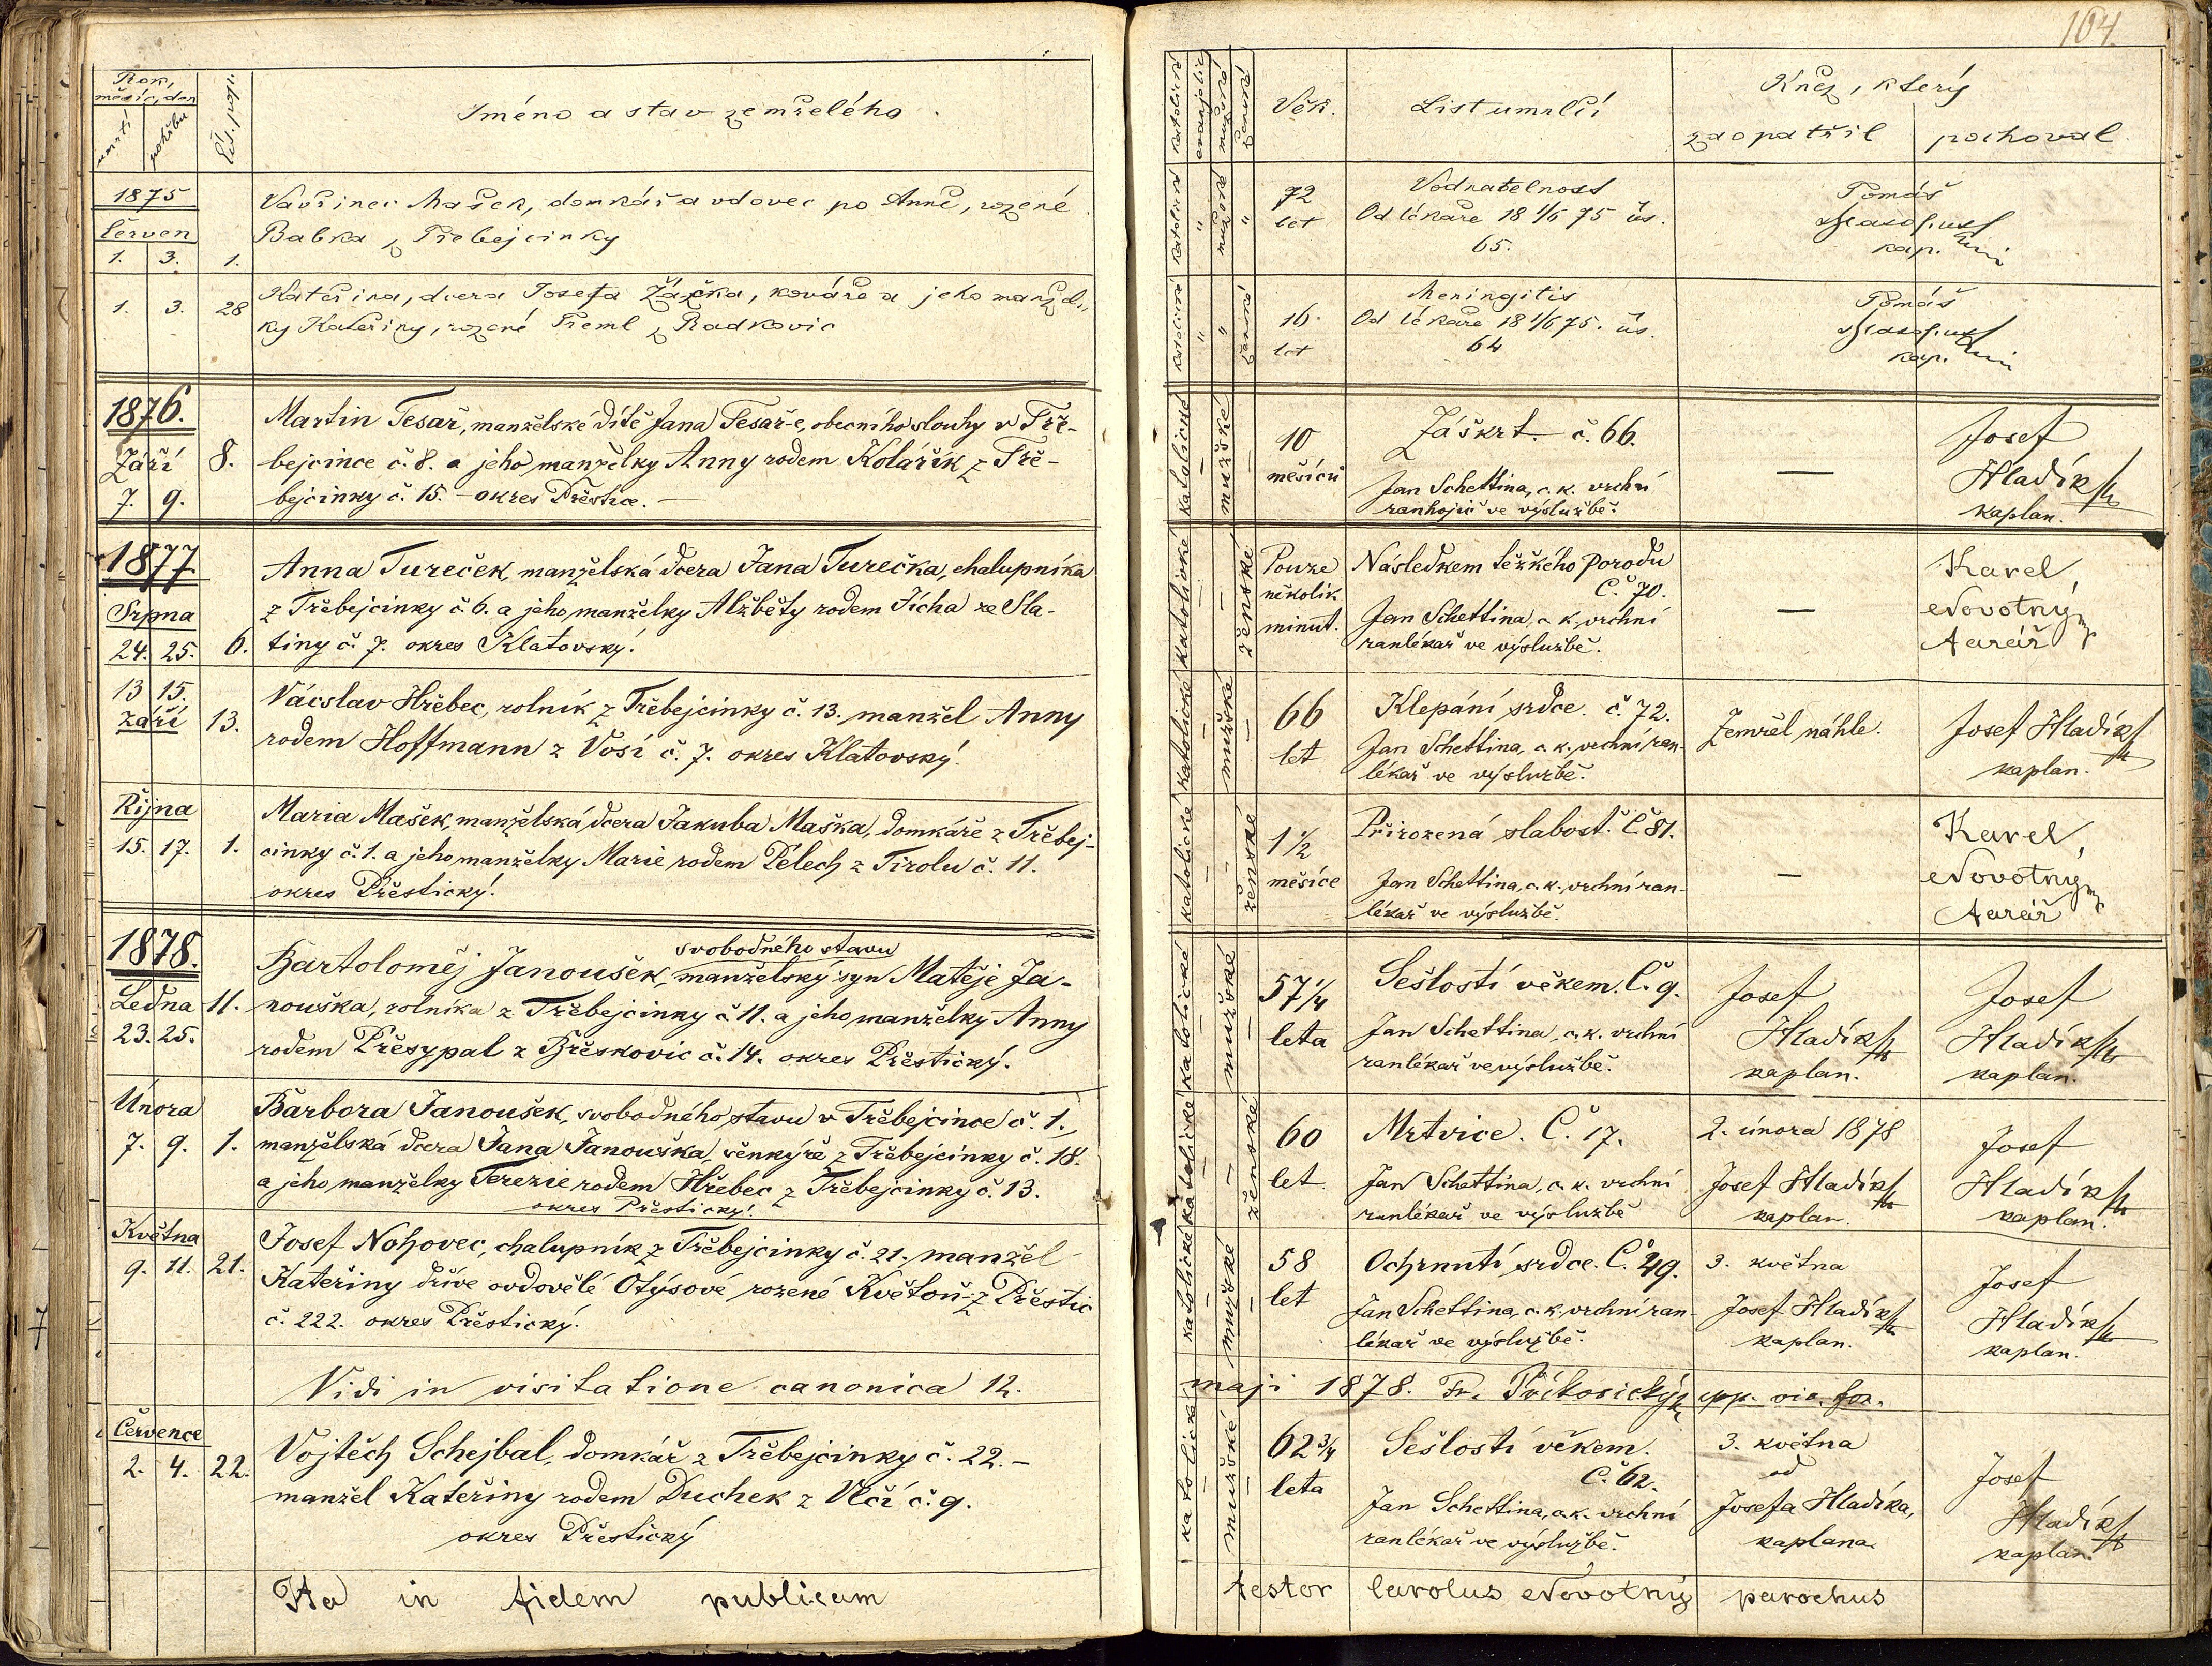 104.
Rok,
měsíc, den
úmrtí
pohřbu
Čís. popis.
Jméno a stav zemřelého.
1875
Červen
1. 3. 1.
Vavřinec Mašek, domkář a vdovec po Anně, rozené
Babka z Třebejcinky
1. 3. 28
Kateřina, dcera Josefa Žáčka, kováře a jeho manžel-
ky Kateřiny, rozené Treml z Radkovic
1876.
Září
7. 9.
8.
Martin Tesař, manželské dítě Jana Tesař-e, obecního slouhy v Tře-
bejcince č. 8. a jeho manželky Anny rodem Kolařík z Tře-
bejcinky č. 15. - okres Přeštice. -
1877.
Srpna
24. 25. 6.
Anna Tureček, manželská dcera Jana Turečka, chalupníka
z Třebejcinky č 6. a jeho manželky Alžběty rodem Jícha ze Sla-
tiny č. 7. okres Klatovský.
13 15.
září
13.
Vácslav Hřebec, rolník z Třebejcinky č. 13. manžel Anny
rodem Hoffmann z Vosí č. 7. okres Klatovský.
Října
15. 17. 1.
Maria Mašek, manželská dcera Jakuba Maška, domkáře z Třebej-
cinky č. 1. a jeho manželky Marie rodem Pelech z Tirolu č. 11.
okres Přeštický.
1878.
Ledna 11.
23. 25.
svobodného stavu
Bartoloměj Janoušek, manželský syn Matěje Ja-
nouška, rolníka z Třebejcinky č 11. a jeho manželky Anny
rodem Přesypal z Břeskovic č. 14. okres Přeštický.
Února
7. 9. 1.
Barbora Janoušek, svobodného stavu v Třebejcince č. 1.,
manželská dcera Jana Janouška, šenkýře z Třebejcinky č. 18.
a jeho manželky Terezie rodem Hřebec z Třebejcinky č. 13.
okres Přeštický.
Května
9. 11. 21.
Josef Nohovec, chalupník z Třebejcinky č. 21. manžel
Kateřiny dříve ovdovělé Otýsové rozené Květoň z Přeštic
č. 222. okres Přeštický.
Vidi in visitatione canonica 12.
Července
2. 4. 22.
Vojtěch Schejbal, domkář z Třebejcinky č. 22. -
manžel Kateřiny rodem Duchek z Vlčí č. 9.
okres Přeštický
Ita in fidem publicam
katolické
evanjelic
mužské
ženské
Věk.
List umrlčí
Kněz, který
zaopatřil
pochoval
katolické " mužské "
72
let
Vodnatelnost
Od lékaře 18 1/6 75 čís.
65.
Tomáš
kap.
katolické " " ženské
16
let
Meningitis
Od lékaře 18 1/6 75. čís.
64
Tomáš
kap.
katolické - mužské -
10
měsíců
Záškrt. č. 66.
Jan Schettina, c. k. vrchní
ranhojič ve výslužbě.
—
Josef
Hladík
kaplan.
katolické - - ženské
Pouze
několik
minut.
Následkem těžkého porodu
Č. 70.
Jan Schettina, c. k. vrchní
ranlékař ve výslužbě.
—
Karel
Novotný
farář
katolické - mužské -
66
let
Klepání srdce. č. 72.
Jan Schettina, c. k. vrchní ran-
lékař ve výslužbě.
Zemřel náhle.
Josef Hladík
kaplan.
katolické - - ženské
1 1/2
měsíce
Přirozená slabost. Č 81.
Jan Schettina, c. k. vrchní ran-
lékař ve výslužbě.
—
Karel
Novotný
farář
katolické - mužské -
57 1/4
leta
Sešlostí věkem. Č. 9.
Jan Schettina, c. k. vrchní
ranlékař ve výslužbě.
Josef
Hladík
kaplan.
Josef
Hladík
kaplan.
katolické - - ženské
60
let
Mrtvice. Č. 17.
Jan Schettina, c. k. vrchní
ranlékař ve výslužbě
2. února 1878
Josef Hladík
kaplan.
Josef
Hladík
kaplan.
katolické - mužské -
58
let
Ochrnutí srdce. Č. 49.
Jan Schettina, c. k. vrchní ran-
lékař ve výslužbě.
3. května
Josef Hladík
kaplan.
Josef
Hladík
kaplan.
maji 1878. Fr. epp. vic. for.
katolické - mužské -
62 3/4
leta
Sešlostí věkem.
Č. 62.
Jan Schettina, c. k. vrchní
ranlékař ve výslužbě.
3. května
od
Josefa Hladíka,
kaplana
Josef
Hladík
kaplan.
testor Carolus Novotný parochus